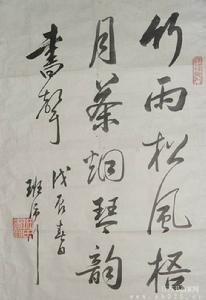 竹雨松风梧
月茶烟琴韵
書聲
戊辰春日